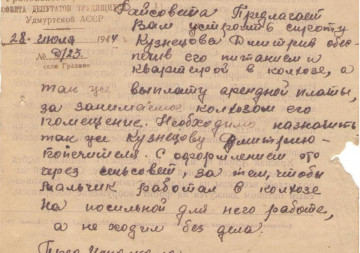 СОВЕТА ДЕПУТАТОВ ТРУДЯЩИХСЯ
Удмуртской АССР
28 июля 1944
село Грахово
Райсовета Предлагает
Вам устроить сироту
Кузнецова Дмитрия обес
печив его питанием и
квартирой в колхозе, а
так же выплату арендной платы,
за занимаемое колхозом его
помещение. Необходимо назначить
так же Кузнецову Дмитрию-
попечителя. С оформлением
через сельсовет, за тем, чтобы
мальчик работал в колхозе
на посильной для него работе,
а не ходил без дела.